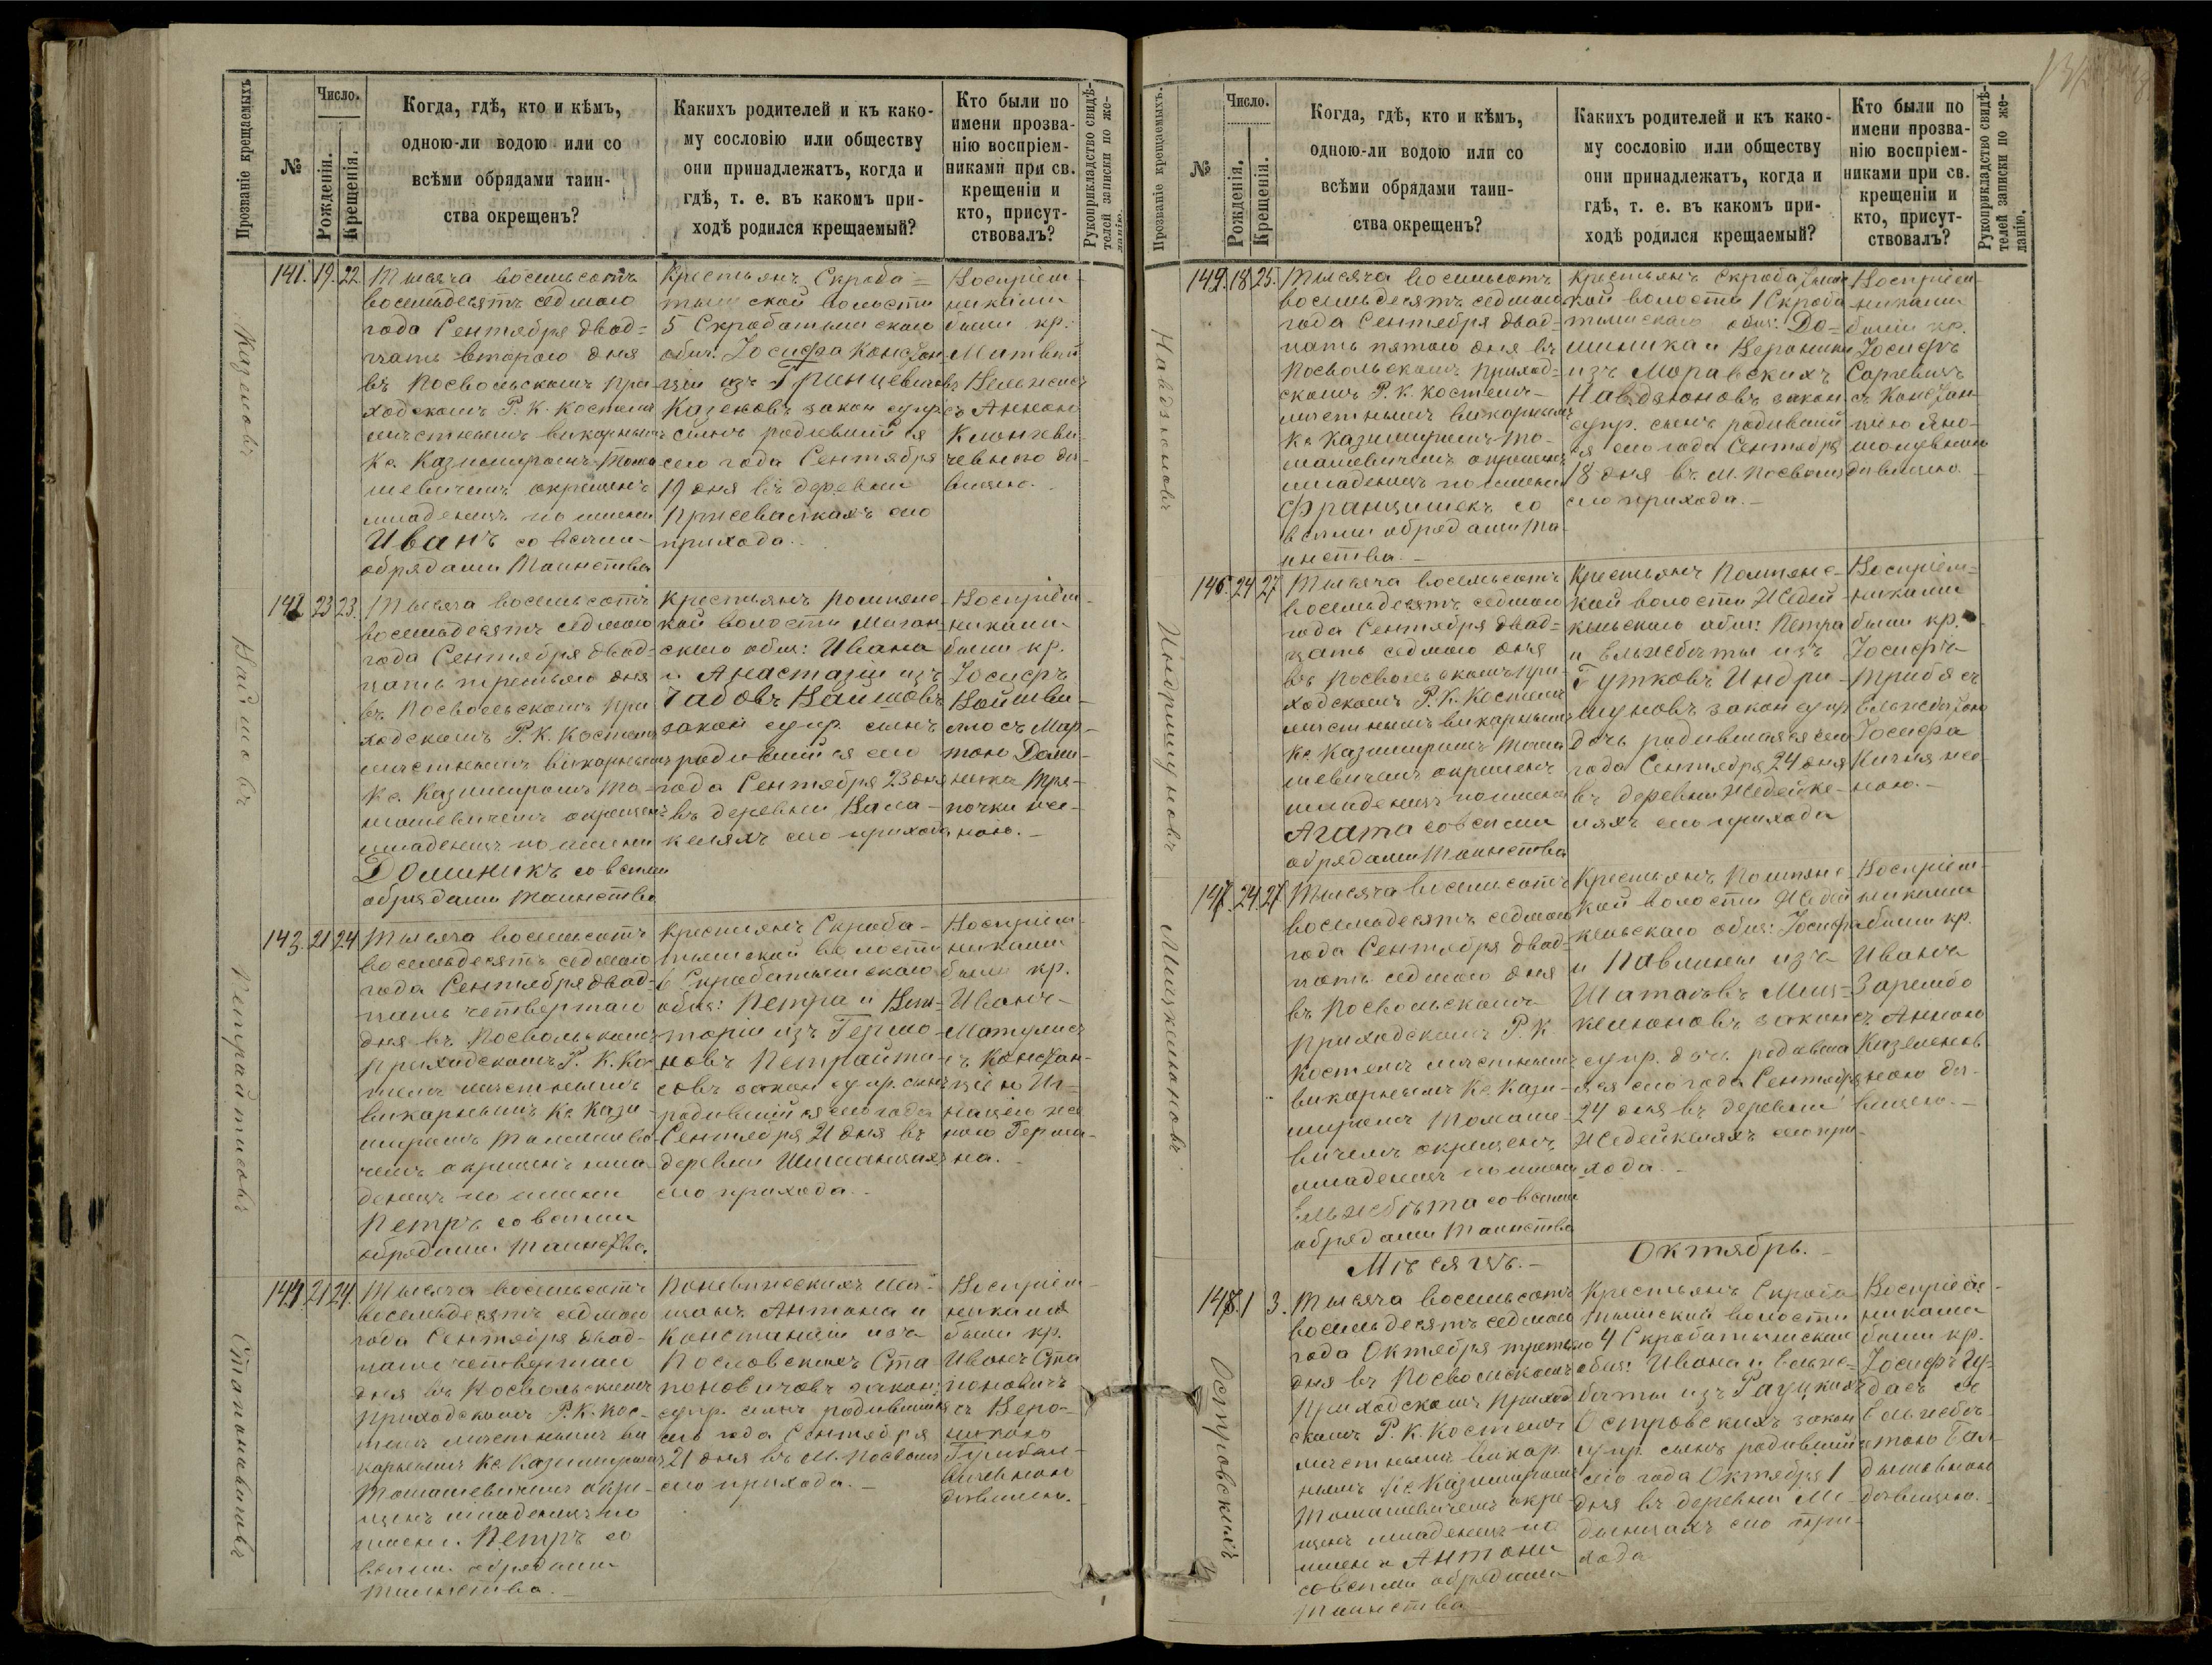 Прозваніе крещаемыхъ
№
Число.
Рожденія.
Крещенія.
Когда, гдѣ, кто и кѣмъ,
одною-ли водою или со
всѣми обрядами таин-
ства окрещенъ?
Какихъ родителей и къ како-
му сословію или обществу
они принадлежатъ, когда и
гдѣ, т. е. въ какомъ при-
ходѣ родился крещаемый?
Кто были по
имени прозва-
нію воспріем-
никами при св.
крещеніи и
кто, присут-
ствовалъ?
Рукоприкладство свидѣ-
телей записки по же-
ланію.
141. 19. 22.
Тысяча восемьсотъ
восемьдесятъ седмого
года Сентября двад=
цать второго дня
въ Посвольскомъ при-
ходскомъ Р. К. Костелѣ
мѣстнымъ викарнымъ
Кс. Казимиромъ Тома
шевичемъ окрещенъ
младенецъ по имени
Иванъ со всѣми
обрядами Таинства
Крестьянъ Скроба=
тышской волости
5 Скробатышскаго
общ. Іосифа Констан
ціи изъ Гринцевичовъ
Казеновъ закон. супр.
сынъ родившійся
сего года Сентября
19 дня въ деревни
сего
прихода.
Воспріем-
никами
были кр.
Матвѣй
съ Анною
вицею.
142 23 23.
Тысяча восемьсотъ
восемьдесятъ седмого
года Сентября двад-
цать третьяго дня
въ Посвольскомъ при
ходскомъ Р. К. Костелѣ
мѣстнымъ викарнымъ
Кс. Казимиромъ То-
машевичемъ окрещенъ
младенецъ по имени
Доминикъ со всѣми
обрядами Таинства
Крестьянъ Помпянс-
кой волости
скаго общ: Ивана
и Анастазіи изъ
Чадовъ Вайшовъ
закон. супр. сынъ
родившійся сего
года Сентября 23 дня
въ деревни Вала-
келяхъ сего прихода
Воспріем-
никами
были кр.
Іосифъ
съ Мар-
тою Доми-
ника
же-
ною.
Вайшовъ
143. 21 24
Тысяча восемьсотъ
восемьдесятъ седмого
года Сентября двад-
цать четвертаго
дня въ Посвольскомъ
приходскомъ Р. К. Ко-
стелѣ мѣстнымъ
викарнымъ Кс. Кази
миромъ Томашеви
чемъ окрещенъ мла
денецъ по имени
Петръ со всѣми
обрядами Таинства.
Крестьянъ Скроба-
тышской волости
6 Скробатышскаго
общ: Петра и Вик-
торіи изъ Гермо-
новъ Петрайти-
совъ закон. супр. сынъ
родившійся сего года
Сентября 21 дня въ
деревни
сего прихода.
Воспріем-
никами
были кр.
Иванъ
Матулисъ
съ Констан-
ціею Иг-
нація же
ною Герма-
на.
Петрайтисовъ
144. 21 24.
Тысяча восемьсотъ
восемьдесятъ седмого
года Сентября двад-
цать четвертаго
дня въ Посвольскомъ
приходскомъ Р. К. Кос-
телѣ мѣстнымъ ви
карнымъ Кс. Казимиромъ
Томашевичемъ окре-
щенъ младенецъ по
имени Петръ со
всѣми обрядами
Таинства.
Поневѣжскихъ мѣ-
щанъ Антона и
Констанціи изъ
Пословскихъ Ста-
поновичовъ закон.
супр. сынъ родившійся
сего года Сентября
21 дня въ М. Посволѣ
сего прихода.
Воспріем-
никами
были кр.
Иванъ Ста
поновичъ
съ Веро-
никою
довицею.
Стапоновичовъ
Прозваніе крещаемыхъ.
№
Число.
Рожденія.
Крещенія.
Когда, гдѣ, кто и кѣмъ,
одною-ли водою или со
всѣми обрядами таин-
ства окрещенъ?
Какихъ родителей и къ како-
му сословію или обществу
они принадлежатъ, когда и
гдѣ, т. е. въ какомъ при-
ходѣ родился крещаемый?
Кто были по
имени прозва-
нію воспріем-
никами при св.
крещеніи и
кто, присут-
ствовалъ?
Рукоприкладство свидѣ-
телей записки по же-
ланію.
145. 18 25.
Тысяча восемьсотъ
восемьдесятъ седмого
года Сентября двад=
цать пятого дня въ
Посвольскомъ приход=
скомъ Р. К. Костелѣ
мѣстнымъ викарнымъ
Кс. Казимиромъ То-
машевичемъ окрещенъ
младенецъ по имени
Францишекъ со
всѣми обрядами Та
инства.
Крестьянъ Скробатышс
кой волости 1 Скроба
тышскаго общ: До=
миника и Вероники
изъ Моравскихъ
Навдзюновъ закон.
супр. сынъ родившій
ся сего года Сентября
18 дня въ М. Посволѣ
сего прихода.
Воспріем-
никами
были кр.
Іосифъ
съ Констан-
ціею Яно-
довицею.
Навдзюновъ
146. 24 27
Тысяча восемьсотъ
восемьдесятъ седмого
года Сентября двад=
цать седмого дня
въ Посвольскомъ при
ходскомъ Р. К. Костелѣ
мѣстнымъ викарнымъ
Кс. Казимиромъ Тома
шевичемъ окрещенъ
младенецъ по имени
Агата со всѣми
обрядами Таинства
Крестьянъ Помпянс-
кой волости Жедей
кельскаго общ: Петра
и Ельжбѣты изъ
Гутковъ Индри-
шуновъ закон. супр
дочь родившаяся сего
года Сентября 24 дня
въ деревни Жедейке-
ляхъ сего прихода
Воспріем-
никами
были кр.
Іосифъ
съ
Ельжбѣтою
Іосифа
же-
ною.
Индришуновъ
147. 24. 27
Тысяча восемьсотъ
восемьдесятъ седмого
года Сентября двад-
цать седмого дня
въ Посвольскомъ
приходскомъ Р. К.
Костелѣ мѣстнымъ
викарнымъ Кс. Кази-
миромъ Томаше-
вичемъ окрещенъ
младенецъ по имени
Ельжбѣта со всѣми
обрядами Таинства
Крестьянъ Помпянс-
кой волости Жедей
кельскаго общ: Іосифа
и Павлины изъ
Шатасовъ Миц-
келюновъ закон.
супр. дочь родивша
яся сего года Сентября
24 дня въ деревни
Жедейкеляхъ сего при-
хода.
Воспріем-
никами
были кр.
Иванъ
Зарембо
съ Анною
Казеленов
ною дѣ-
вицею.
Мицкелюновъ
Мѣсяцъ.
Октябрь.
148. 1 3.
Тысяча восемьсотъ
восемьдесятъ седмого
года Октября третьяго
дня въ Посвольскомъ
приходскомъ приход
скомъ Р. К. Костелѣ
мѣстнымъ викар
нымъ Кс. Казимиромъ
Томашевичемъ окре-
щенъ младенецъ по
имени Антони
со всѣми обрядами
Таинства
Крестьянъ Скроба
тышской волости
4 Скробатышскаго
общ: Ивана и Ельж-
бѣты изъ Рауцкихъ
Островскихъ закон
супр. сынъ родившійся
сего года Октября 1
дня въ деревни Ме-
дынцахъ сего при-
хода
Воспріем-
никами
были кр.
Іосифъ Гу-
дасъ съ
Ельжбѣ-
тою
довицею.
Островскихъ